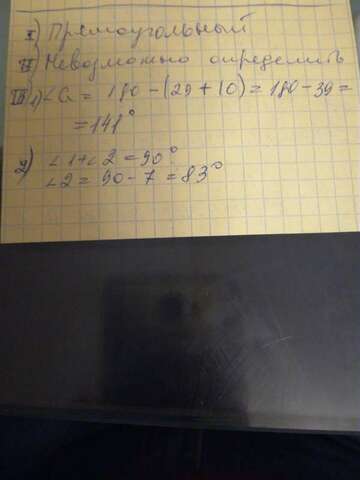 I) Прямоугольный
II) Невозможно определить
III) 1) ∠a = 180 - (29 + 10) = 180 - 39 =
= 141°
2) ∠1 + ∠2 = 90°
∠2 = 90 - 7 = 83°